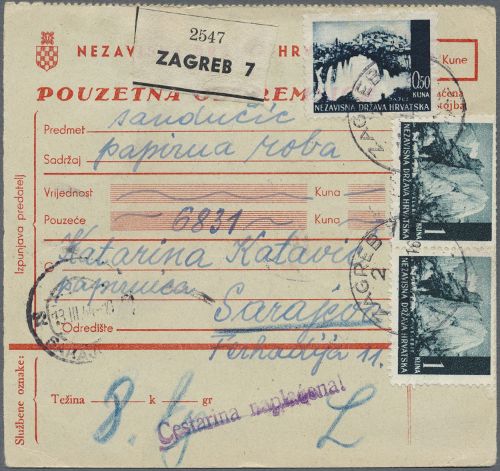 2547
ZAGREB 7
NEZAVIS HR
Kune
POUZETNA O REM
0.50
KUNA
NEZAVISNA DRŽAVA HRVATSKA
Predmet sandučić
Sadržaj papirna roba
Vrijednost Kuna
Pouzeće 6831 Kuna
Katarina Katavić
papirnica
Sarajevo
Odredište
Ferhadija 11.
Težina 8. k gr
Cestarina naplaćena!
Ispunjava predatelj
Službene oznake:
ZAGREB
NEZAVISNA DRŽAVA HRVATSKA
1
KUNA
ZAGREB 2
NEZAVISNA DRŽAVA HRVATSKA
1
KUNA
13 III 44